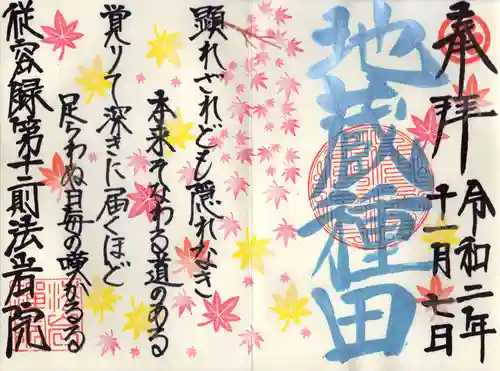 奉拝
令和二年
十一月七日
地蔵種田
顕れざれども隠れなき
本来そなわる道のある
覚りて深きに届くほど
足らわぬ日毎の
従容録第十二則法岩院